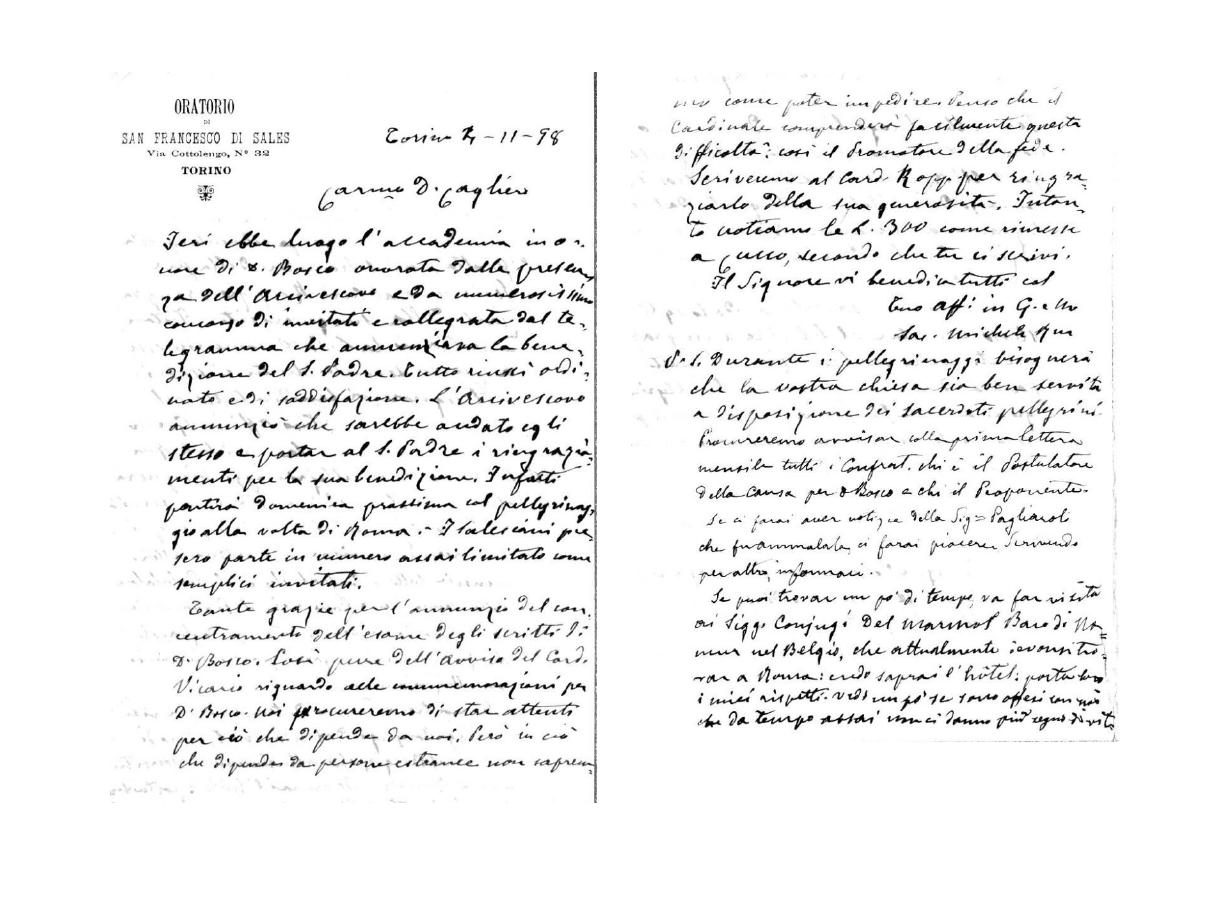 ORATORIO
DI
SAN FRANCESCO DI SALES
Via Cottolengo, N° 32
TORINO
Torino 4-11-98
Carmo D. Cagliero
Ieri ebbe luogo l'accademia in o-
nore di D. Bosco onorata dalla presen-
za dell'Arcivescovo e da numerosissimo
concorso di invitati e rallegrata dal te-
legramma che annunziava la bene-
dizione del S. Padre. Tutto riuscì ordi-
nato e di soddisfazione. L'Arcivescovo
annunziò che sarebbe andato egli
stesso a portar al S. Padre i ringrazia-
menti per la sua benedizione. Infatti
partirà domenica prossima col pellegrinag-
gio alla volta di Roma. - I Salesiani pre-
sero parte in numero assai limitato come
semplici invitati.
Tante grazie per l'annunzio del con-
centramento dell'esame degli scritti di
D. Bosco. Così pure dell'avviso del Card.
Vicario riguardo alle commemorazioni per
D. Bosco. Noi procureremo di star attenti
per ciò che dipende da noi. Però in ciò
che dipende da persone estranee non saprem-
mo come poter impedire. Penso che il
Cardinale comprenderà facilmente questa
difficoltà: così il Promotore della fede.
Scriveremo al Card. Kopp per ringra-
ziarlo della sua generosità. Intan-
to notiamo le L. 300 come rimesse
a Cucco, secondo che tu ci scrivi.
Il Signore vi benedica tutti col
tuo aff. in G. e M
Sac. Michele Rua
P.S. Durante i pellegrinaggi bisognerà
che la vostra chiesa sia ben servita
a disposizione dei sacerdoti pellegrini
Procureremo avvisar colla prima lettera
mensile tutti i Confrat. chi è il Postulatore
della Causa per D Bosco e chi il Proponente.
Se ci farai aver notizie della Sig.ra Pagliaroli
che fu ammalata, ci farai piacere. Scrivendo
per altro, informaci.
Se puoi trovar un po' di tempo, va far visita
ai Sigg. Conjugi Del Marmol Baro di Na-
mur nel Belgio, che attualmente devonsi tro-
var a Roma: credo saprai l'hôtel: porta loro
i miei rispetti. Vedi un po' se sono offesi con noi
che da tempo assai non ci danno più segno di vita